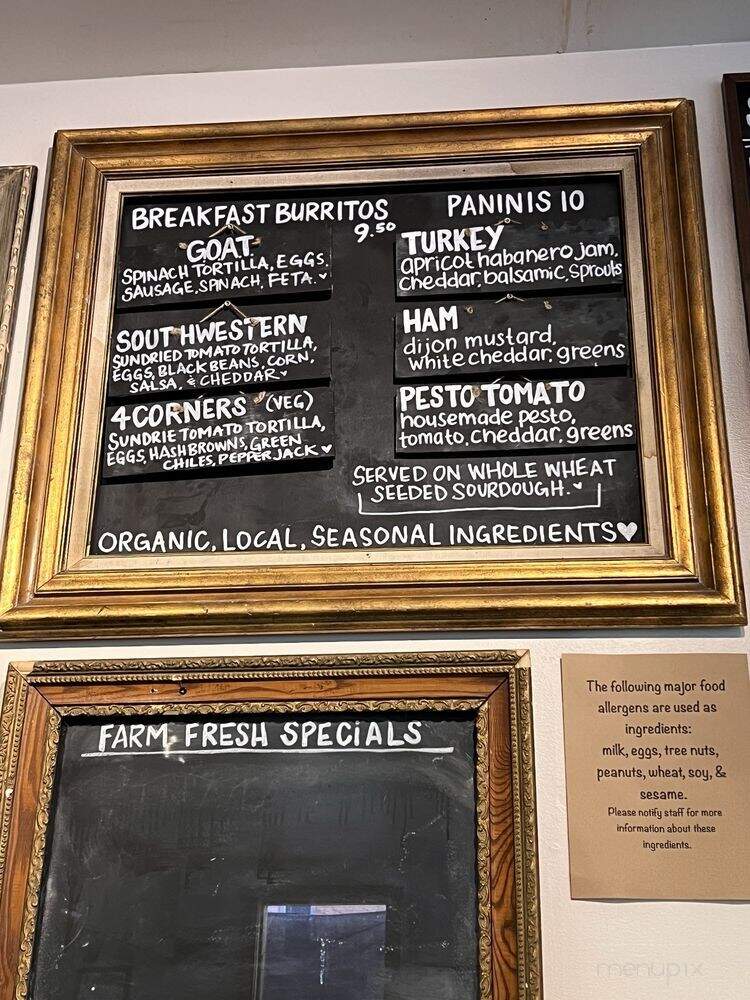 BREAKFAST BURRITOS
9.50
GOAT
SPINACH TORTILLA, EGGS,
SAUSAGE, SPINACH, FETA.
SOUTHWESTERN
SUNDRIED TOMATO TORTILLA,
EGGS, BLACK BEANS, CORN,
SALSA, & CHEDDAR
4 CORNERS (VEG)
SUNDRIE TOMATO TORTILLA,
EGGS, HASHBROWNS, GREEN
CHILES, PEPPERJACK
PANINIS 10
TURKEY
apricot habanero jam,
cheddar, balsamic, sprouts
HAM
dijon mustard,
white cheddar, greens
PESTO TOMATO
housemade pesto,
tomato, cheddar, greens
SERVED ON WHOLE WHEAT
SEEDED SOURDOUGH.
ORGANIC, LOCAL, SEASONAL INGREDIENTS
FARM FRESH SPECIALS
The following major food
allergens are used as
ingredients:
milk, eggs, tree nuts,
peanuts, wheat, soy, &
sesame.
Please notify staff for more
information about these
ingredients.
menupix